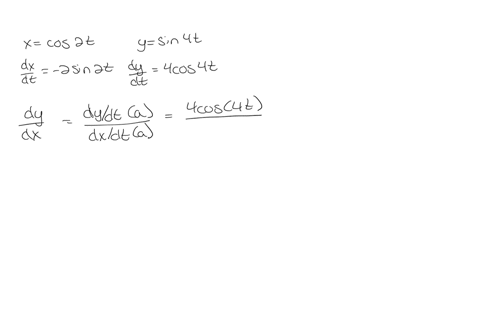 x = cos 2t y = sin 4t
dx/dt = -2 sin 2t dy/dt = 4 cos 4t
dy/dx = dy/dt (a) / dx/dt (a) = 4 cos(4t)